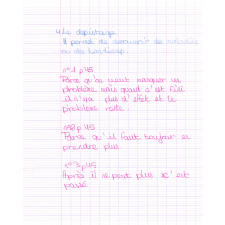 4 Le dépistage
Il permet de découvrir de maladie
ou des handicap.
n°1 p45
Parce qu'on veut masquer un
problème mais quand c'est fini
il n'y a plus d'effet et le
problème reste.
n°2 p45
Parce qu'il faut toujour en
prendre plus
n°3 p45
Après il ne peut plus c'est
passé